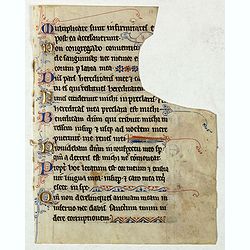 Multiplicate sunt infirmitates e
postea acceleraverunt
Non congregabo conventic
de sanguinibus nec memor e
eorum per labia mea
Dns pars hereditatis mee et c
es qui restitues hereditatem
Funes ceciderunt michi in precla
hereditas mea preclara est michi
Benedicam dnm qui tribuit michi in
insup et usq ad noctem incre
puerunt me renes mei
Providebam dnm in conspectu meo sp
qm a dextris est michi ne commovear
Propt hoc letatum est cor meum et exulta
vit lingua mea insup et caro mea req
escet in spe
Qm non derelinques animam meam in
inferno nec dabis sanctum tuum vi
dere corruptionem